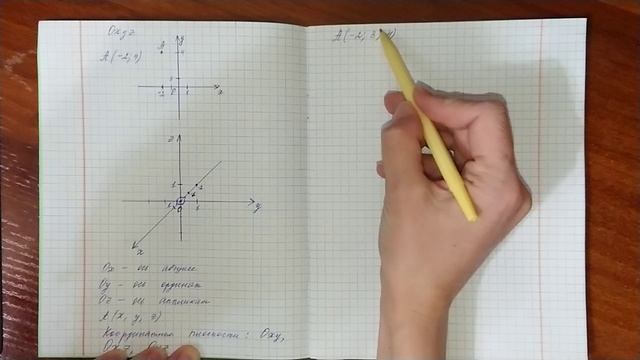 Oxyz
A(-2; 4)
y
A
4
1
-2
0
1
x
z
1
1
0
1
y
x
Ox - ось абсцисс
Oy - ось ординат
Oz - ось аппликат
A(x, y, z)
Координатные плоскости: Oxy,
Oxz,
A(-2; 3; 4)